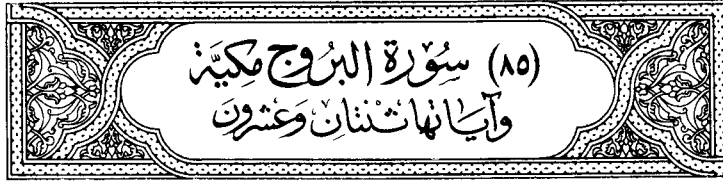 (٨٥) سُوْرَة البرُوج مكيَّة
وَآيَاتهَا ثنْتَانِ وَعشرُونَ